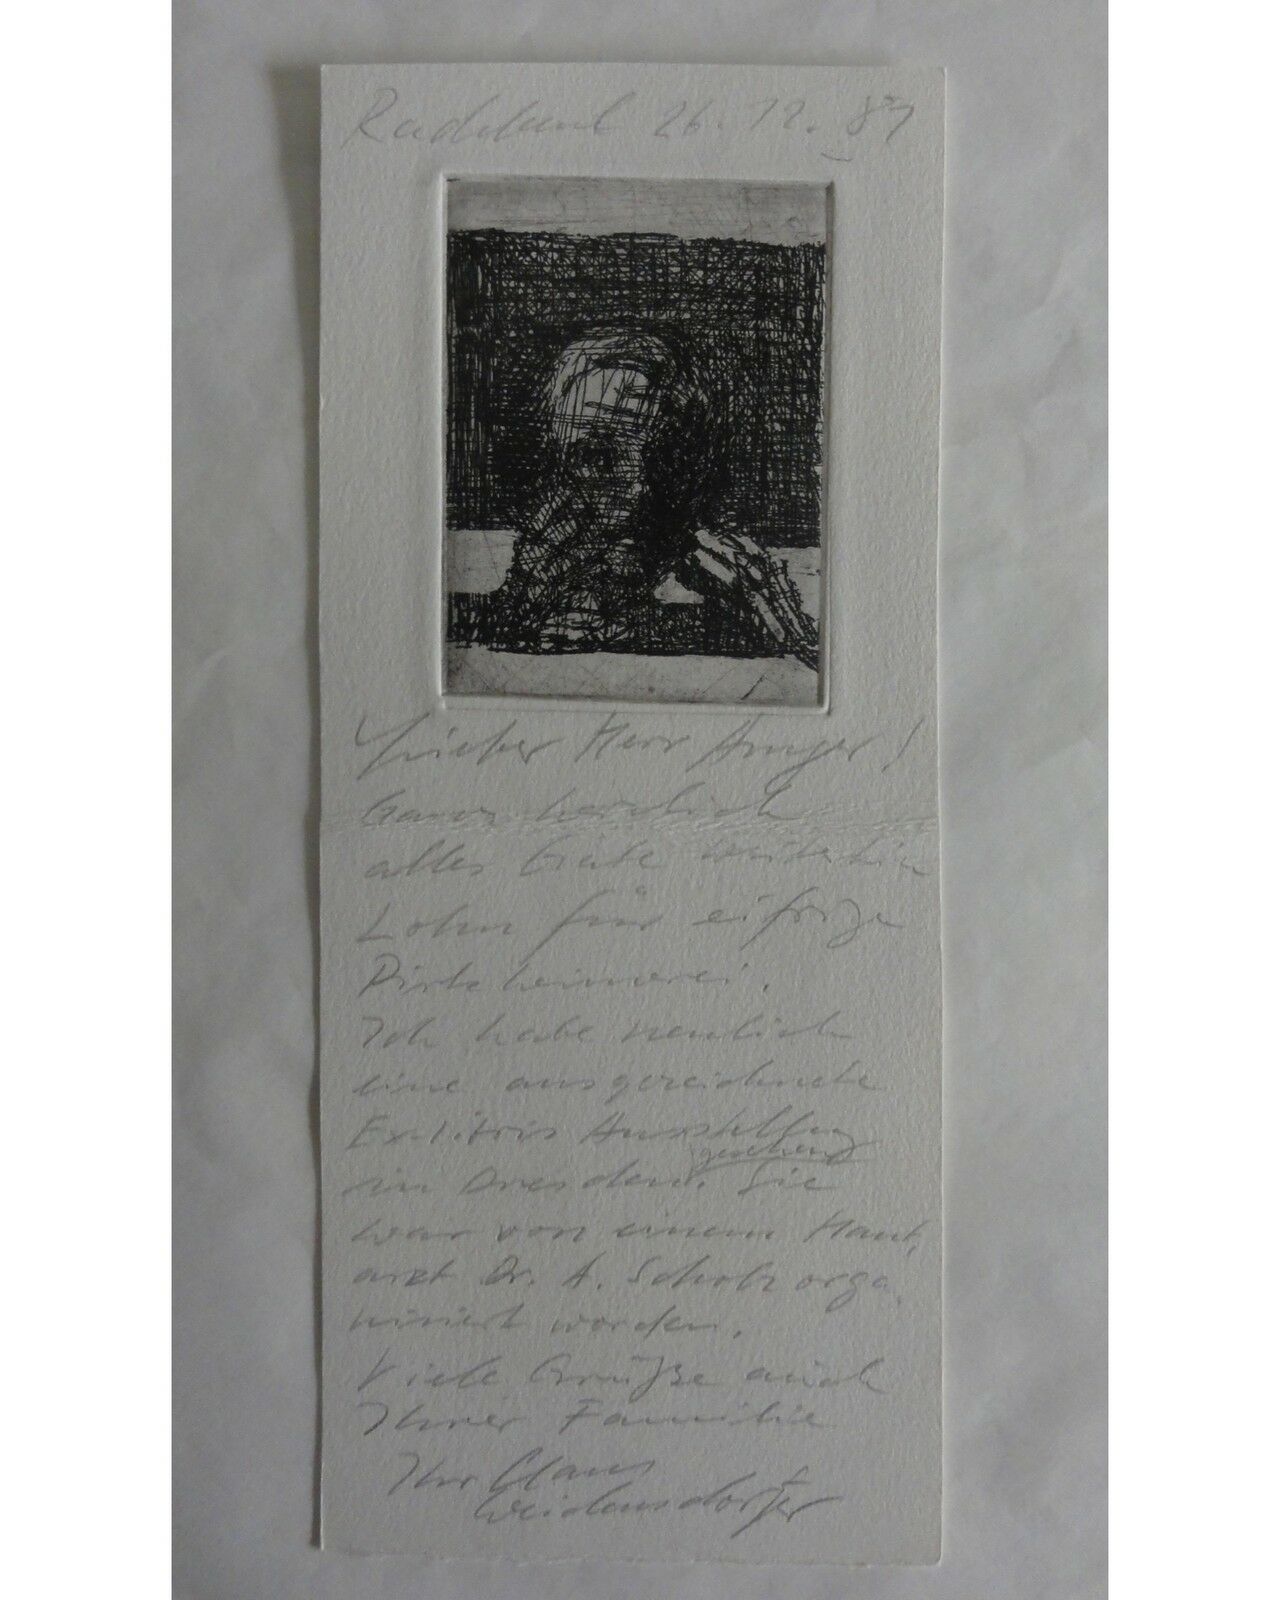 Radebeul 26.12.87
Lieber Herr Unger!
Ganz herzlich
alles Gute weiterhin
Lohn für eifrige
Pirkheimerei.
Ich habe neulich
eine ausgezeichnete
Exlibris Ausstellung
gesehen
in Dresden. Sie
war von einem Haut,
arzt Dr. A. Scholz orga,
nisiert worden.
Viele Grüße auch
Ihrer Familie
Ihr Claus
Weidensdorfer